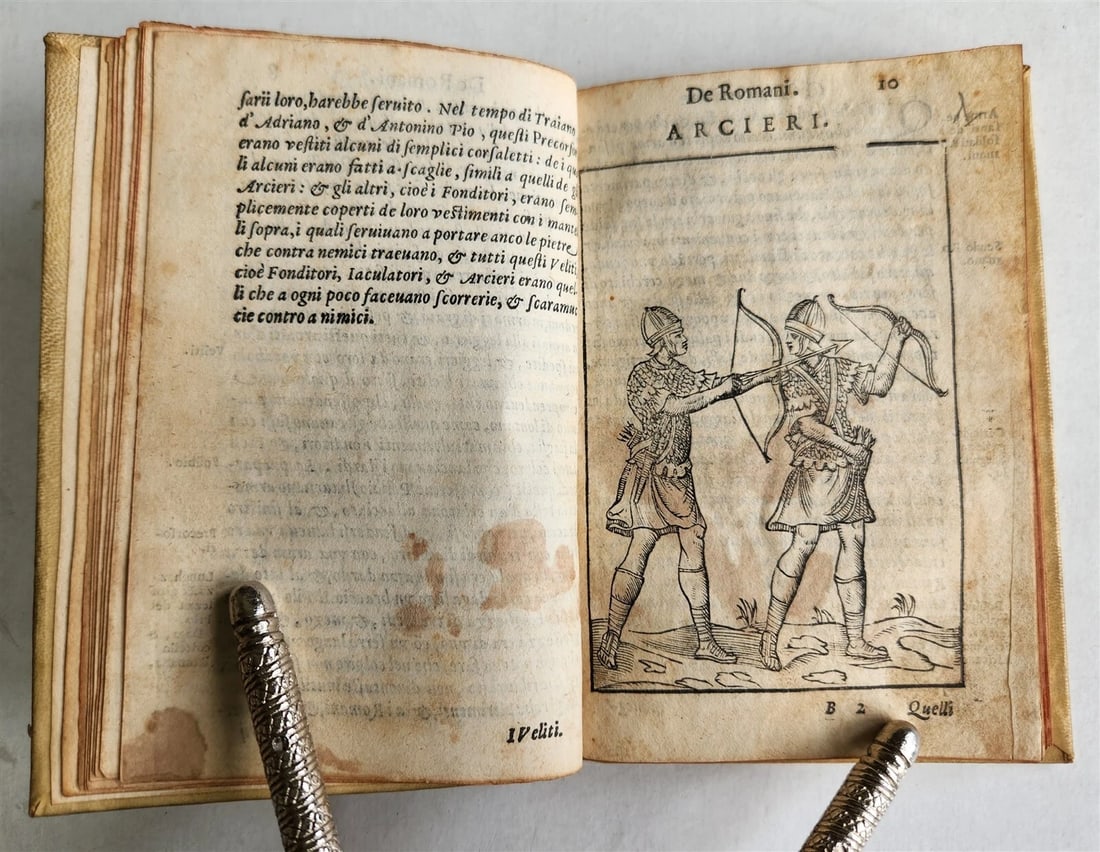 sarii loro, harebbe seruito. Nel tempo di Traiano
d'Adriano, & d'Antonino Pio, questi Precorso
erano vestiti alcuni di semplici corsaletti: de i qu
li alcuni erano fatti a scaglie, simili a quelli de gl
Arcieri: & gli altri, cioè i Fonditori, erano sem
plicemente coperti de loro vestimenti con i mante
li sopra, i quali seruiuano a portare anco le pietre
che contra nemici traeuano, & tutti questi Veliti
cioè Fonditori, Iaculatori, & Arcieri erano quel
li che a ogni poco faceuano scorrerie, & scaramuc
cie contro a nimici.
I Veliti.
De Romani. 10
ARCIERI.
B 2 Quelli